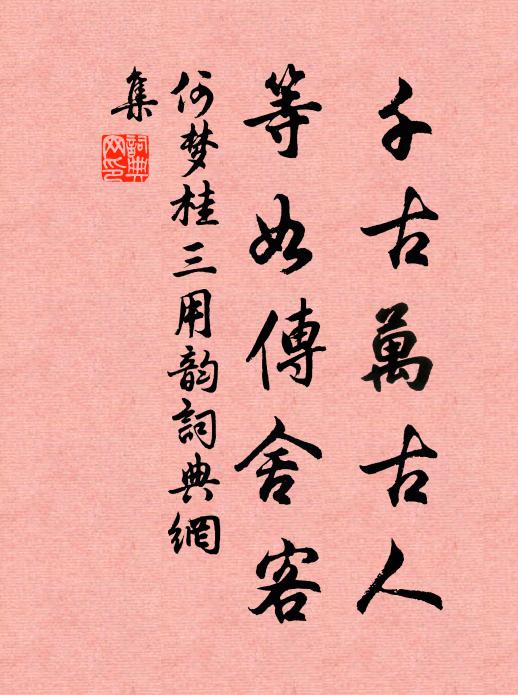 千古萬古人
等如傳舍客
何梦桂三用韵詞典網
集
詞典
网印